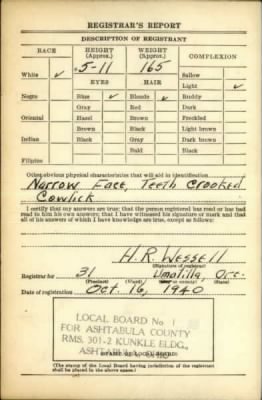 REGISTRAR'S REPORT
DESCRIPTION OF REGISTRANT
RACE HEIGHT (Approx.) WEIGHT (Approx.) COMPLEXION
5-11 165 Sallow
White ✓ EYES HAIR Light ✓
Negro Blue ✓ Blonde ✓ Ruddy
Gray Red Dark
Oriental Hazel Brown Freckled
Brown Black Light brown
Indian Black Gray Dark brown
Bald Black
Filipino
Other obvious physical characteristics that will aid in identification
Narrow Face, Teeth Crooked
Cowlick
I certify that my answers are true; that the person registered has read or has had
read to him his own answers; that I have witnessed his signature or mark and that
all of his answers of which I have knowledge are true, except as follows:
H. R. Wessell
(Signature of registrar)
Registrar for 31 Umatilla, Ore.
(Precinct) (Ward) (City or county) (State)
Date of registration Oct. 16, 1940
LOCAL BOARD No. 1
FOR ASHTABULA COUNTY
RMS. 301-2 KUNKLE BLDG.,
(The stamp of the Local Board having jurisdiction of the registrant
shall be placed in the above space.)